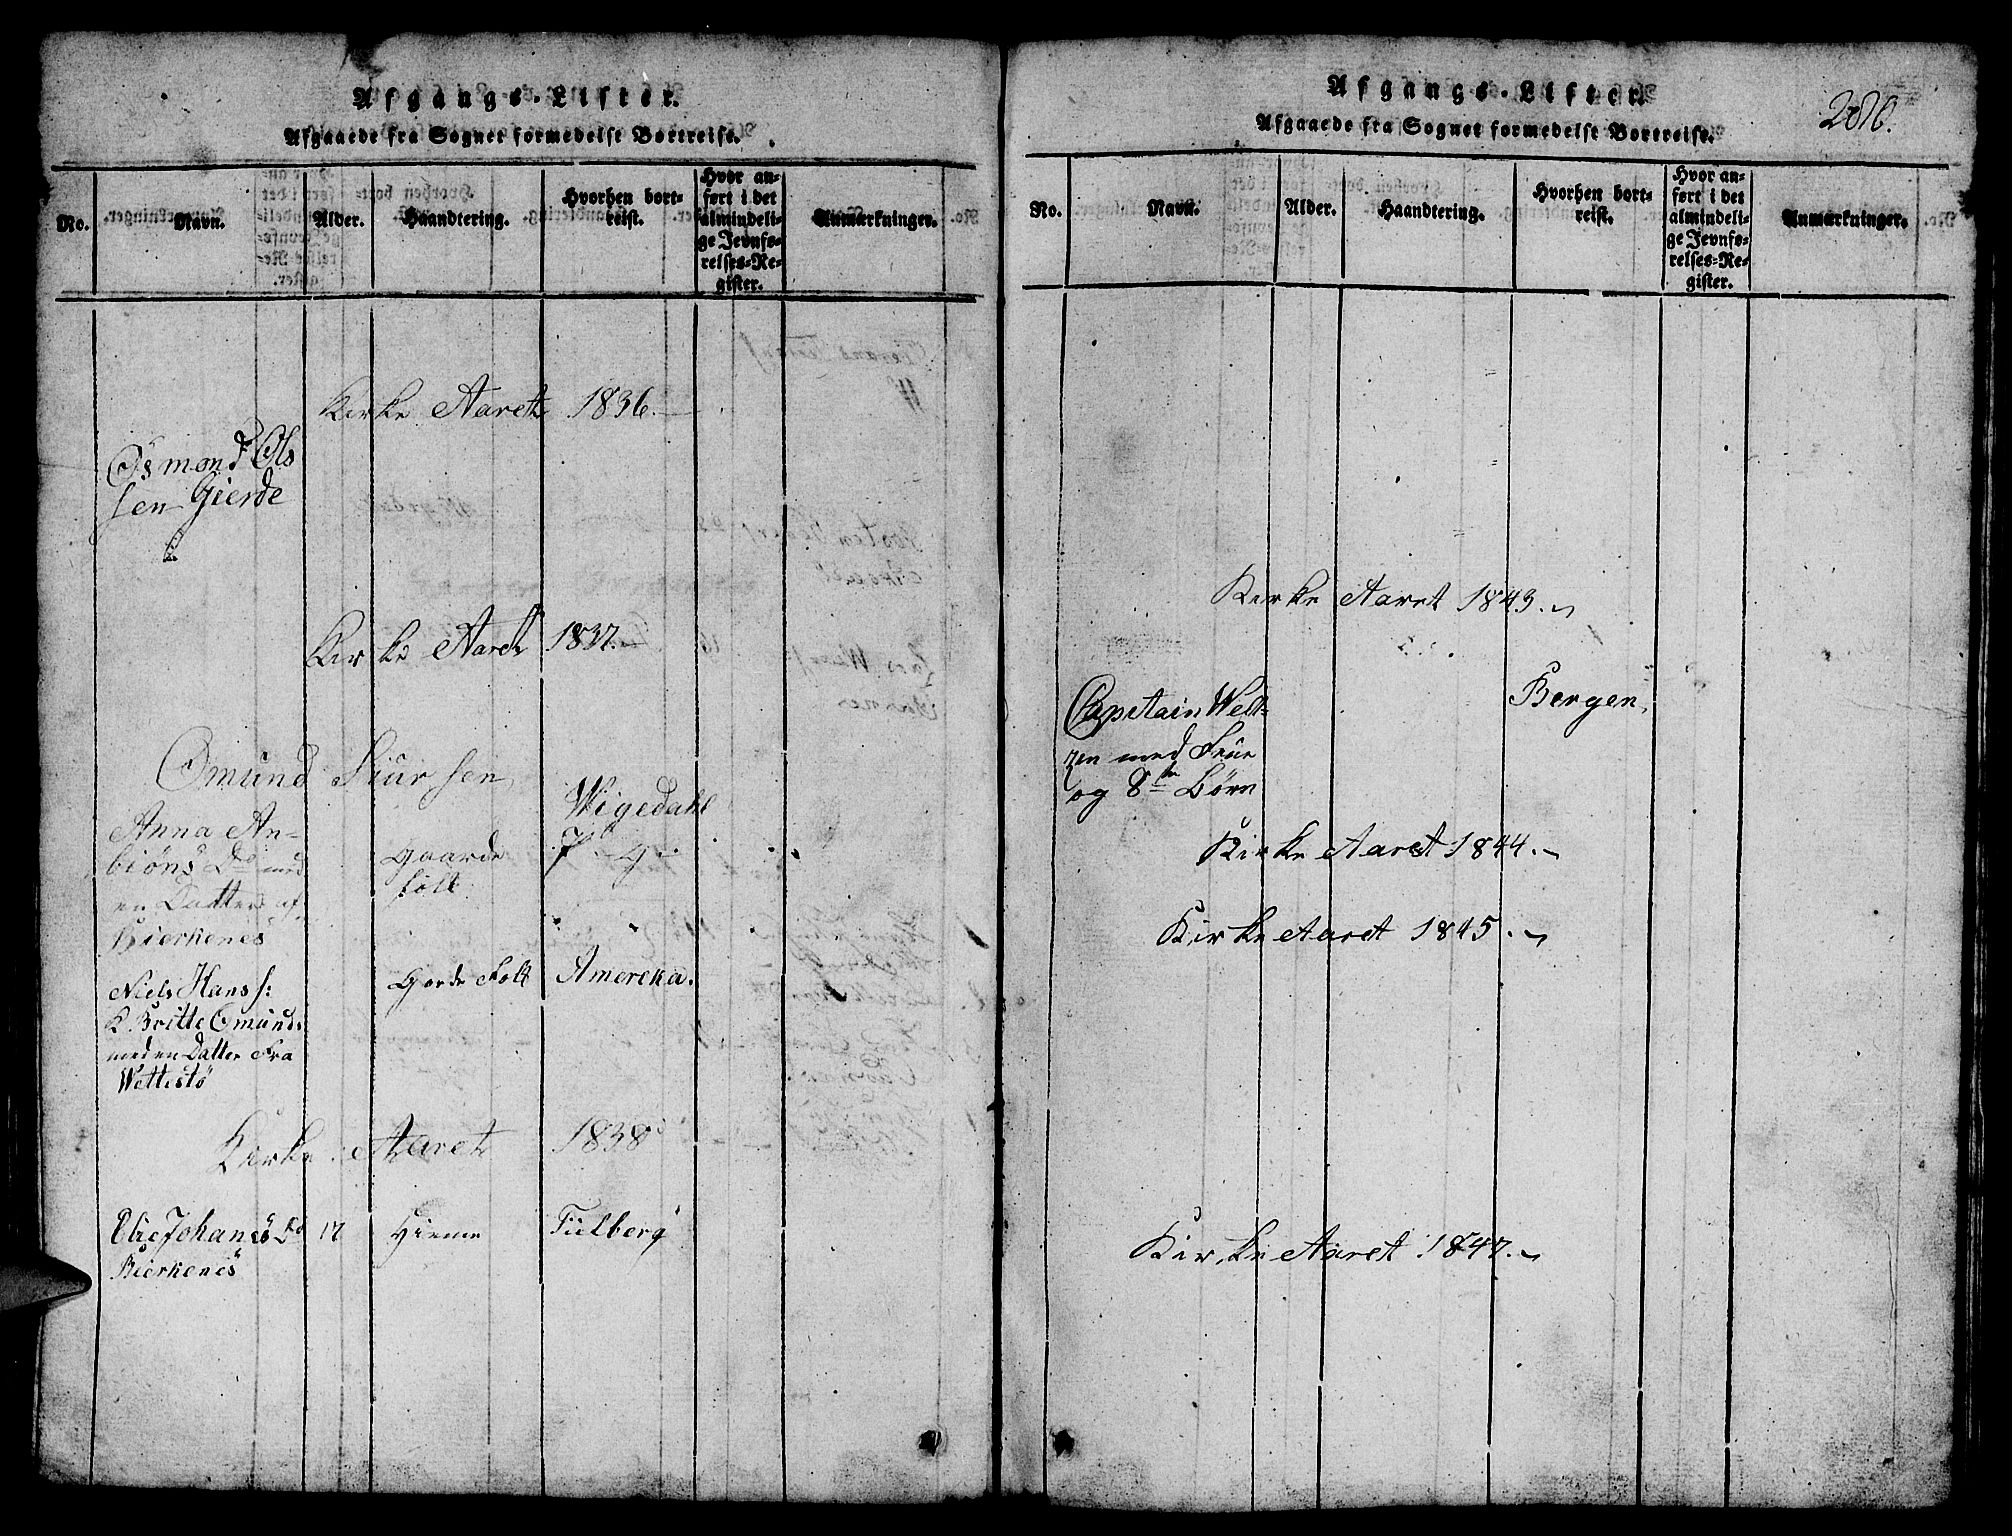 Afgangs-Lister.
Afgaaede fra Sognet formedelst Bortreise.
No.
Navn.
Alder.
Haandtering.
Hvorhen bort-
reist.
Hvor an-
ført i det
almindeli-
ge Jevnfø-
relses-Re-
gister.
Anmærkninger.
Kirke Aaret 1836.
Osmond Ols
sen Gierde
Kirke Aaret 1837.
Omund Siursen
Wigedahl
Anna An-
biøns Dr med
en Datter af
Bierkenes
Gaarde
folk
Niels Hanss:
K. Britte Omunds
med en Datter Fra
Wettestö
Gorde Folk
Amereka.
Kirke Aaret 1838
Elie Johanes D
Bierkenes
17
Hiemme
Tielberg
Afgangs-Lister.
Afgaaede fra Sognet formedelst Bortreise.
No.
Navn.
Alder.
Haandtering.
Hvorhen bort-
reist.
Hvor an-
ført i det
almindeli-
ge Jevnfø-
relses-Re-
gister.
Anmærkninger.
Kirke Aaret 1843.
Capitain Welt-
zen med Frue
og 8te Börn
Bergen
Kirke Aaret 1844.
Kirke Aaret 1845.
Kirke Aaret 1847.